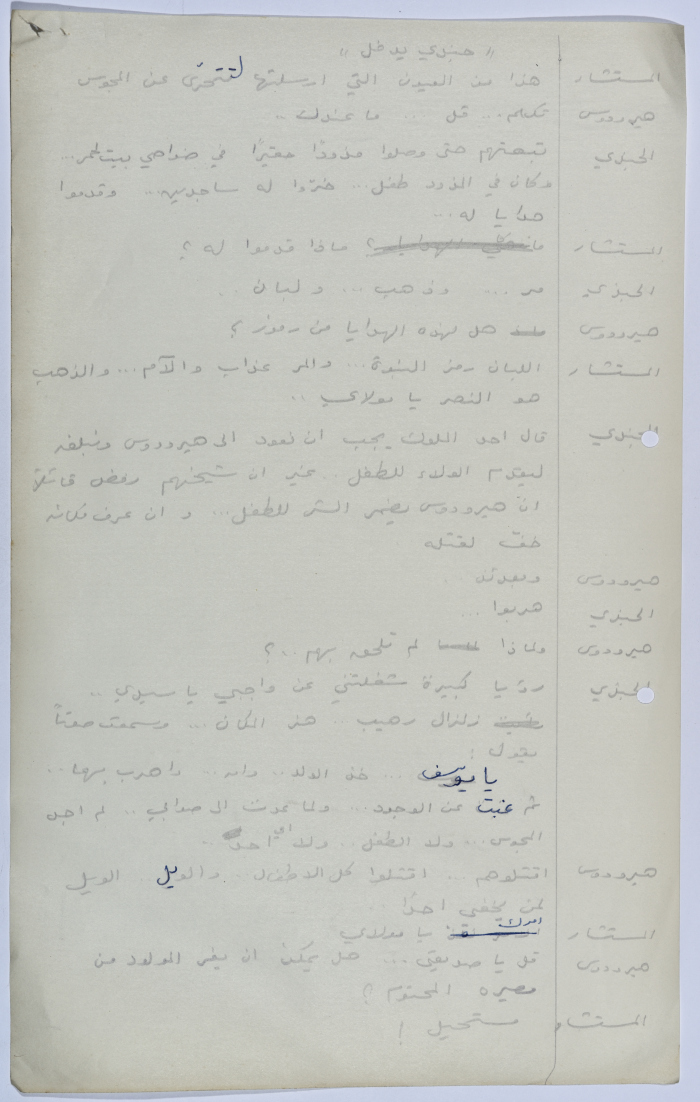 " جندي يدخل "
المستشار هذا من العيون التي ارسلتها لتتحرّى عن المجوس
هيرودوس تكلم... قل .... ما عندك ..
الجندي تبعتهم حتى وصلوا مذودًا حقيرًا في ضواحي بيت لحم...
وكان في المذود طفل... خرّوا له ساجدين... وقدموا
هدايا له ...
المستشار ماذا قدموا له ؟
الجندي مر .... وذهب ... ولبان ..
هيرودوس هل لهذه الهدايا من رموز ؟
المستشار اللبان رمز النبوة... والمر عذاب والآم... والذهب
هو النصر يا مولاي ..
الجندي قال احد الملوك يجب ان نعود الى هيرودوس ونبلغه
ليقدم الولاء للطفل .. غير ان شيخهم رفض قائلاً
انّ هيرودوس يضمر الشر للطفل... و ان عرف مكانه
خفّ لقتله
هيرودوس وبعدئذ
الجندي هربوا ...
هيرودوس ولماذا لم تلحق بهم ...؟
الجندي رؤيا كبيرة شغلتني عن واجبي يا سيدي ..
زلزال رهيب .. هز المكان ... وسمعت صوتاً
يقول :
يا يوسف ... خذ الولد .. وامه ... واهرب بهما ..
ثم غبت عن الوجود... ولما عدت الى صوابي .. لم اجد
المجوس... ولا الطفل .. ولا اي احد ..
هيرودوس اقتلوهم .. اقتلوا كل الاطفال .. والويل .. الويل
لمن يخفي احدًا
المستشار امرك يا مولاي
هيرودوس قل يا صديقي ... هل يمكن ان يفر المولود من
مصيره المحتوم ؟
المستشار مستحيل !